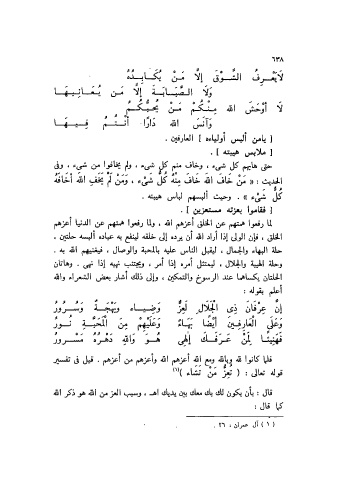 ٦٣٨
لَا يَعْرِفُ الشَّوْقَ إِلَّا مَنْ يُكَابِدُهُ
وَلَا الصَّبَابَةَ إِلَّا مَن يُعَانِيهَا
لَا أَوْحَشَ الله مِنْكُمْ مَنْ يُحِبُّكُمُ
وَآنَسَ الله دَارًا أَنْتُمُ فِيهَا
[ يامن أليس أولياءه ] العارفين .
[ ملابس هيبته ] .
حتى هابهم كل شىء ، وخاف منهم كل شىء ، ولم يخافوا من شىء ، وفى
الحديث : « مَنْ خَافَ الله خَافَ مِنْهُ كُلُّ شَىْء ، وَمَنْ لَمْ يَخَفِ الله أَخَافَهُ
كُلُّ شَىْء » . وحيث ألبسهم لباس هيبته .
[ فقاموا بعزته مستعزين ] .
لما رفعوا همتهم عن الخلق أعزهم الله ، ولما رفعوا همتهم عن الدنيا أعزهم
الخلق ، فإن الولى إذا أراد الله أن يرده إلى خلقه لينفع به عباده ألبسه حلتين .
حلة البهاء والجمال ، ليقبل الناس عليه بالمحبة والوصال ، فيغنيهم الله به .
وحلة الهيبة والجلال ، ليمتثل أمره إذا أمر ، ويجتنب نهيه إذا نهى . وهاتان
الحلتان يكساهما عند الرسوخ والتمكين ، وإلى ذلك أشار بعض الشعراء والله
أعلم بقوله :
إِنَّ عِرْفَانَ ذِى الْجَلَالِ لَعِزٌّ وَضِيَاء وَبَهْجَةٌ وَسُرُورُ
وَعَلَى الْعَارِفِينَ أَيْضًا بَهَاءٌ وَعَلَيْهِمُ مِنَ الْمَحَبَّةِ نُورُ
فَهَنِيئًا لِمَنْ عَرَفَكَ إِلَهِى هُوَ وَاللهِ دَهْرُهُ مَسْرُورُ
فلما كانوا لله وبالله ومع الله أعزهم الله وأعزهم من أعزهم . قيل فى تفسير
قوله تعالى : ( تُعِزُّ مَنْ تَشَاء )(١)
قال : بأن يكون لك بك معك بين يديك اهـ ، وسبب العز من الله هو ذكر الله
كما قال :
( ١ ) آل عمران ، ٢٦ .